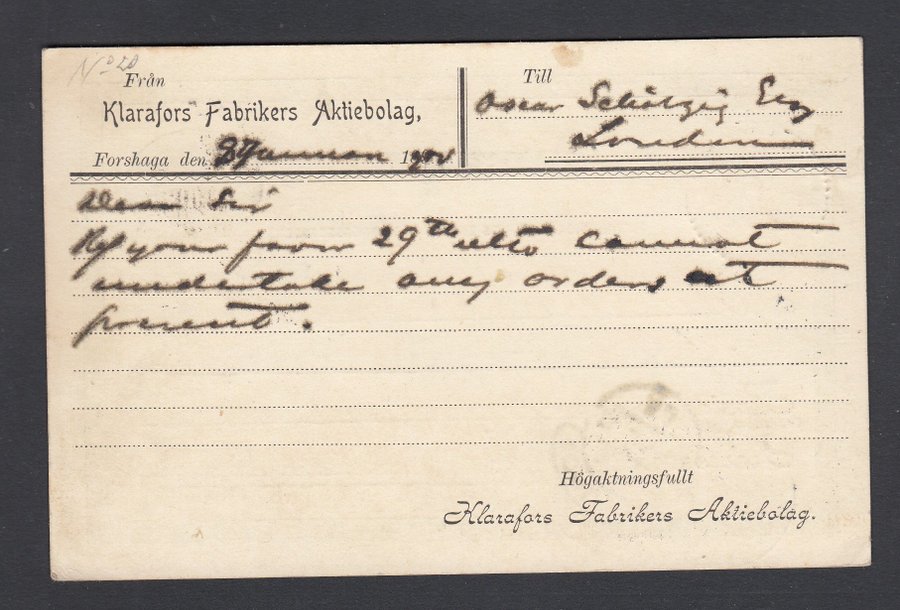 No 20
Från
Klarafors Fabrikers Aktiebolag,
Forshaga den 2 Januari 190
Till
Oscar Schötzig Esq
London
Dear Sir
Ref your favor 29th ulto cannot
undertake any orders at
present.
Högaktningsfullt
Klarafors Fabrikers Aktiebolag.